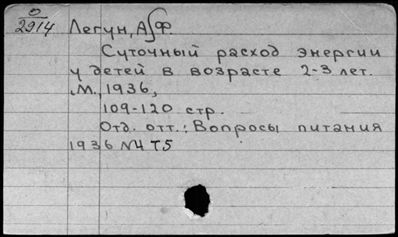 О
2914 Легун, А. Ф.
Суточный расход энергии
у детей в возрасте 2-3 лет.
М., 1936,
109-120 стр.
Отд. отт.: Вопросы питания
1936 №4 Т5